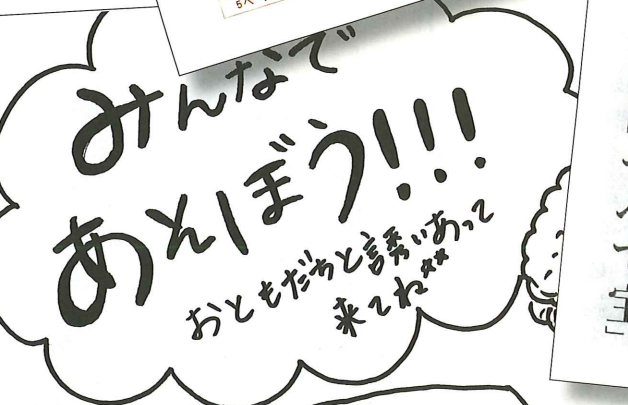 みんなで
あそぼう!!!
おともだちと誘いあって
来てね**